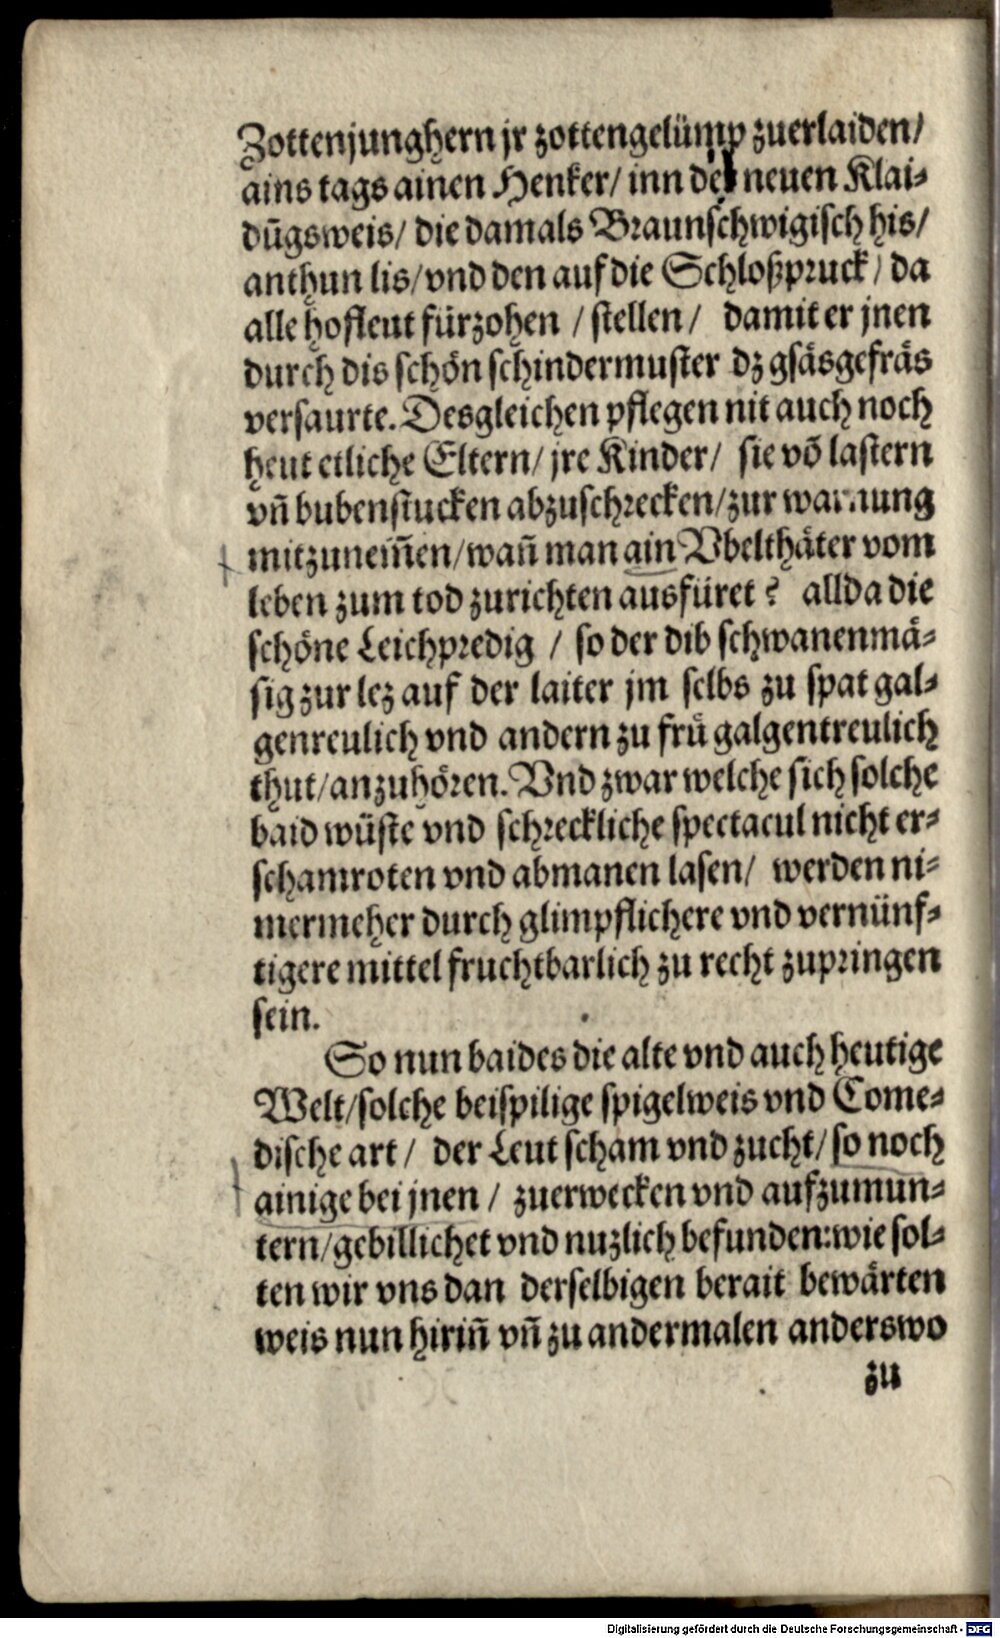 Zottenjunghern jr zottengelümp zuerlaiden/
ains tags ainen Henker/ inn neuen Klai⸗
dūgsweis/ die damals Braunschwigisch his/
anthun lis/ vnd den auf die Schloßpruck/ da
alle hofleut fürzohen / stellen/ damit er jnen
durch dis schön schindermuster dz gsäsgefräs
versaurte. Desgleichen pflegen nit auch noch
heut etliche Eltern/ jre Kinder/ sie võ lastern
vñ bubenstucken abzuschrecken/ zur warnung
mitzunem̃en/ wañ man ain Vbelthäter vom
leben zum tod zurichten ausfüret? allda die
schöne Leichpredig / so der dib schwanenmä⸗
sig zur lez auf der laiter jm selbs zu spat gal⸗
genreulich vnd andern zu frü galgentreulich
thut/ anzuhören. Vnd zwar welche sich solche
baid wüste vnd schreckliche spectacul nicht er⸗
schamroten vnd abmanen lasen/ werden ni⸗
mermeher durch glimpflichere vnd vernünf⸗
tigere mittel fruchtbarlich zu recht zupringen
sein.
So nun baides die alte vnd auch heutige
Welt/ solche beispilige spigelweis vnd Come⸗
dische art/ der Leut scham vnd zucht/ so noch
ainige bei jnen / zuerwecken vnd aufzumun⸗
tern/ gebillichet vnd nuzlich befunden: wie sol⸗
ten wir vns dan derselbigen berait bewärten
weis nun hiriñ vñ zu andermalen anderswo
zu
Digitalisierung gefördert durch die Deutsche Forschungsgemeinschaft - DFG